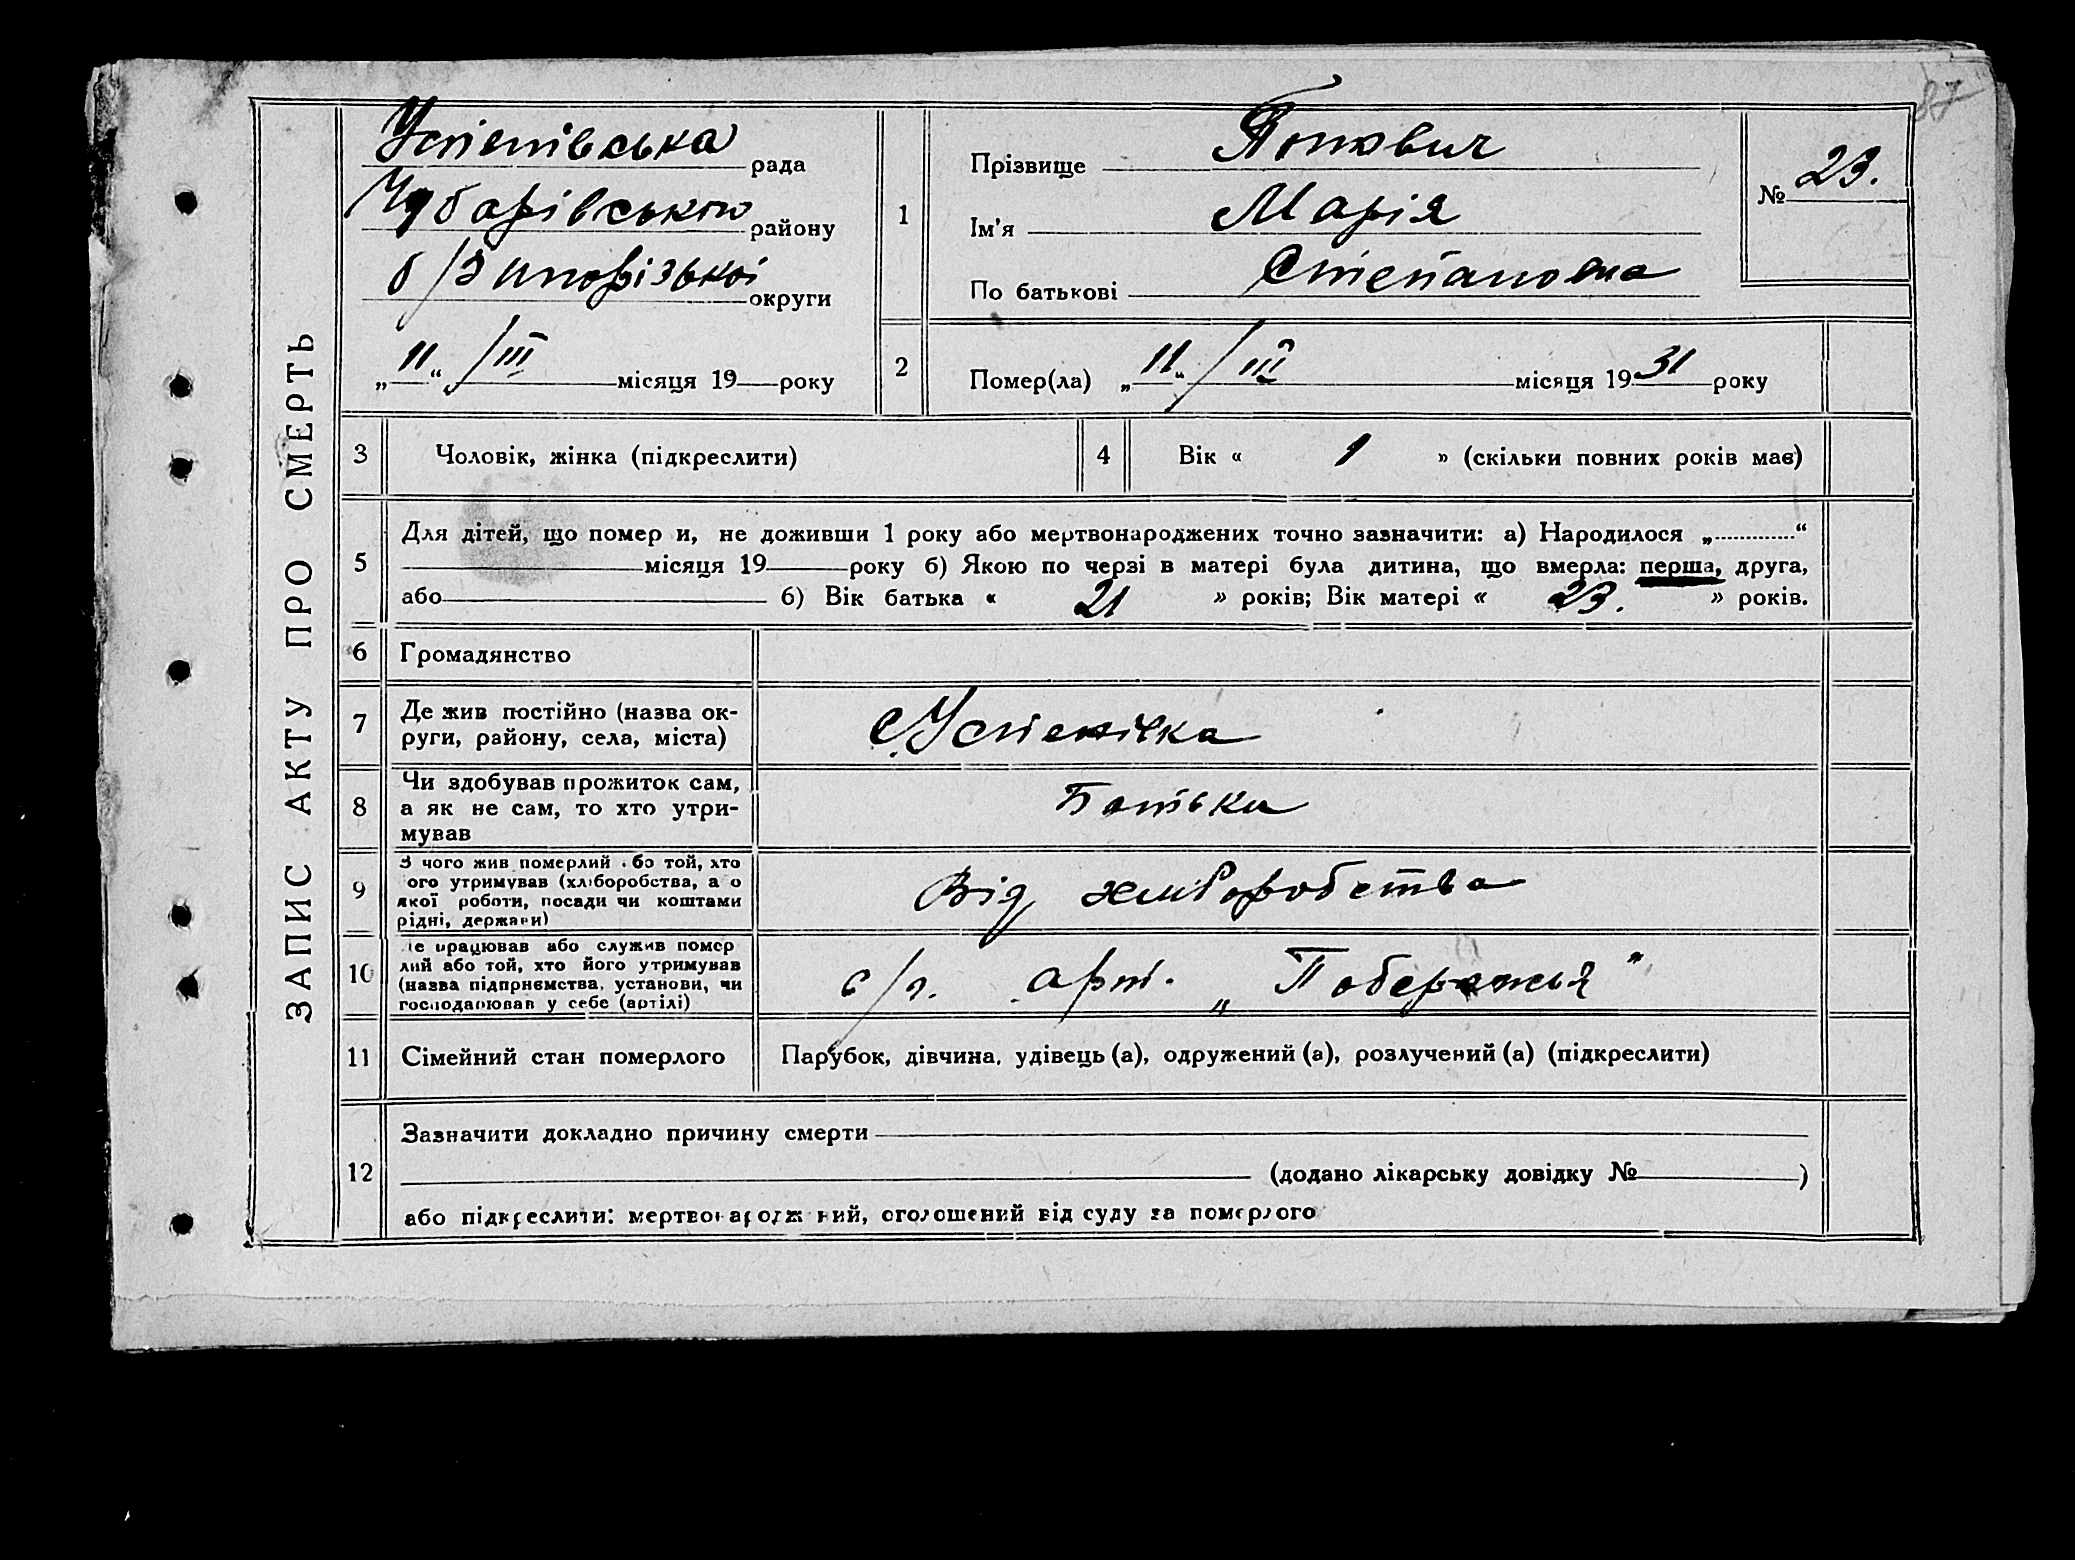 87
ЗАПИС АКТУ ПРО СМЕРТЬ
Успенівська рада
Чубарівського району
б/Запорізької округи
„11“ /III місяця 19 року
1
Прізвище Попович
Ім'я Марія
По батькові Степановна
№ 23.
2
Помер(ла) „11“ /III місяця 1931 року
3 Чоловік, жінка (підкреслити)
4 Вік « 1 » (скільки повних років має)
5
Для дітей, що помер и, не доживши 1 року або мертвонароджених точно зазначити: а) Народилося „ “
місяця 19 року б) Якою по черзі в матері була дитина, що вмерла: перша, друга,
або б) Вік батька « 21 » років; Вік матері « 23. » років.
6 Громадянство
7 Де жив постійно (назва ок-
руги, району, села, міста)
с. Успенівка
8 Чи здобував прожиток сам,
а як не сам, то хто утри-
мував
Батьки
9 З чого жив померлий або той, хто
ого утримував (хліборобства, а о
якої роботи, посади чи коштами
рідні, держави)
Від хліборобства
10 е працював або служив помер
лий або той, хто його утримував
(назва підприємства, установи, чи
господарював у себе (артілі)
с/г. арт. „Побережья"
11 Сімейний стан померлого
Парубок, дівчина, удівець (а), одружений (а), розлучений (а) (підкреслити)
12
Зазначити докладно причину смерти
(додано лікарську довідку № )
або підкреслити: мертвонароджений, оголошений від суду за померлого